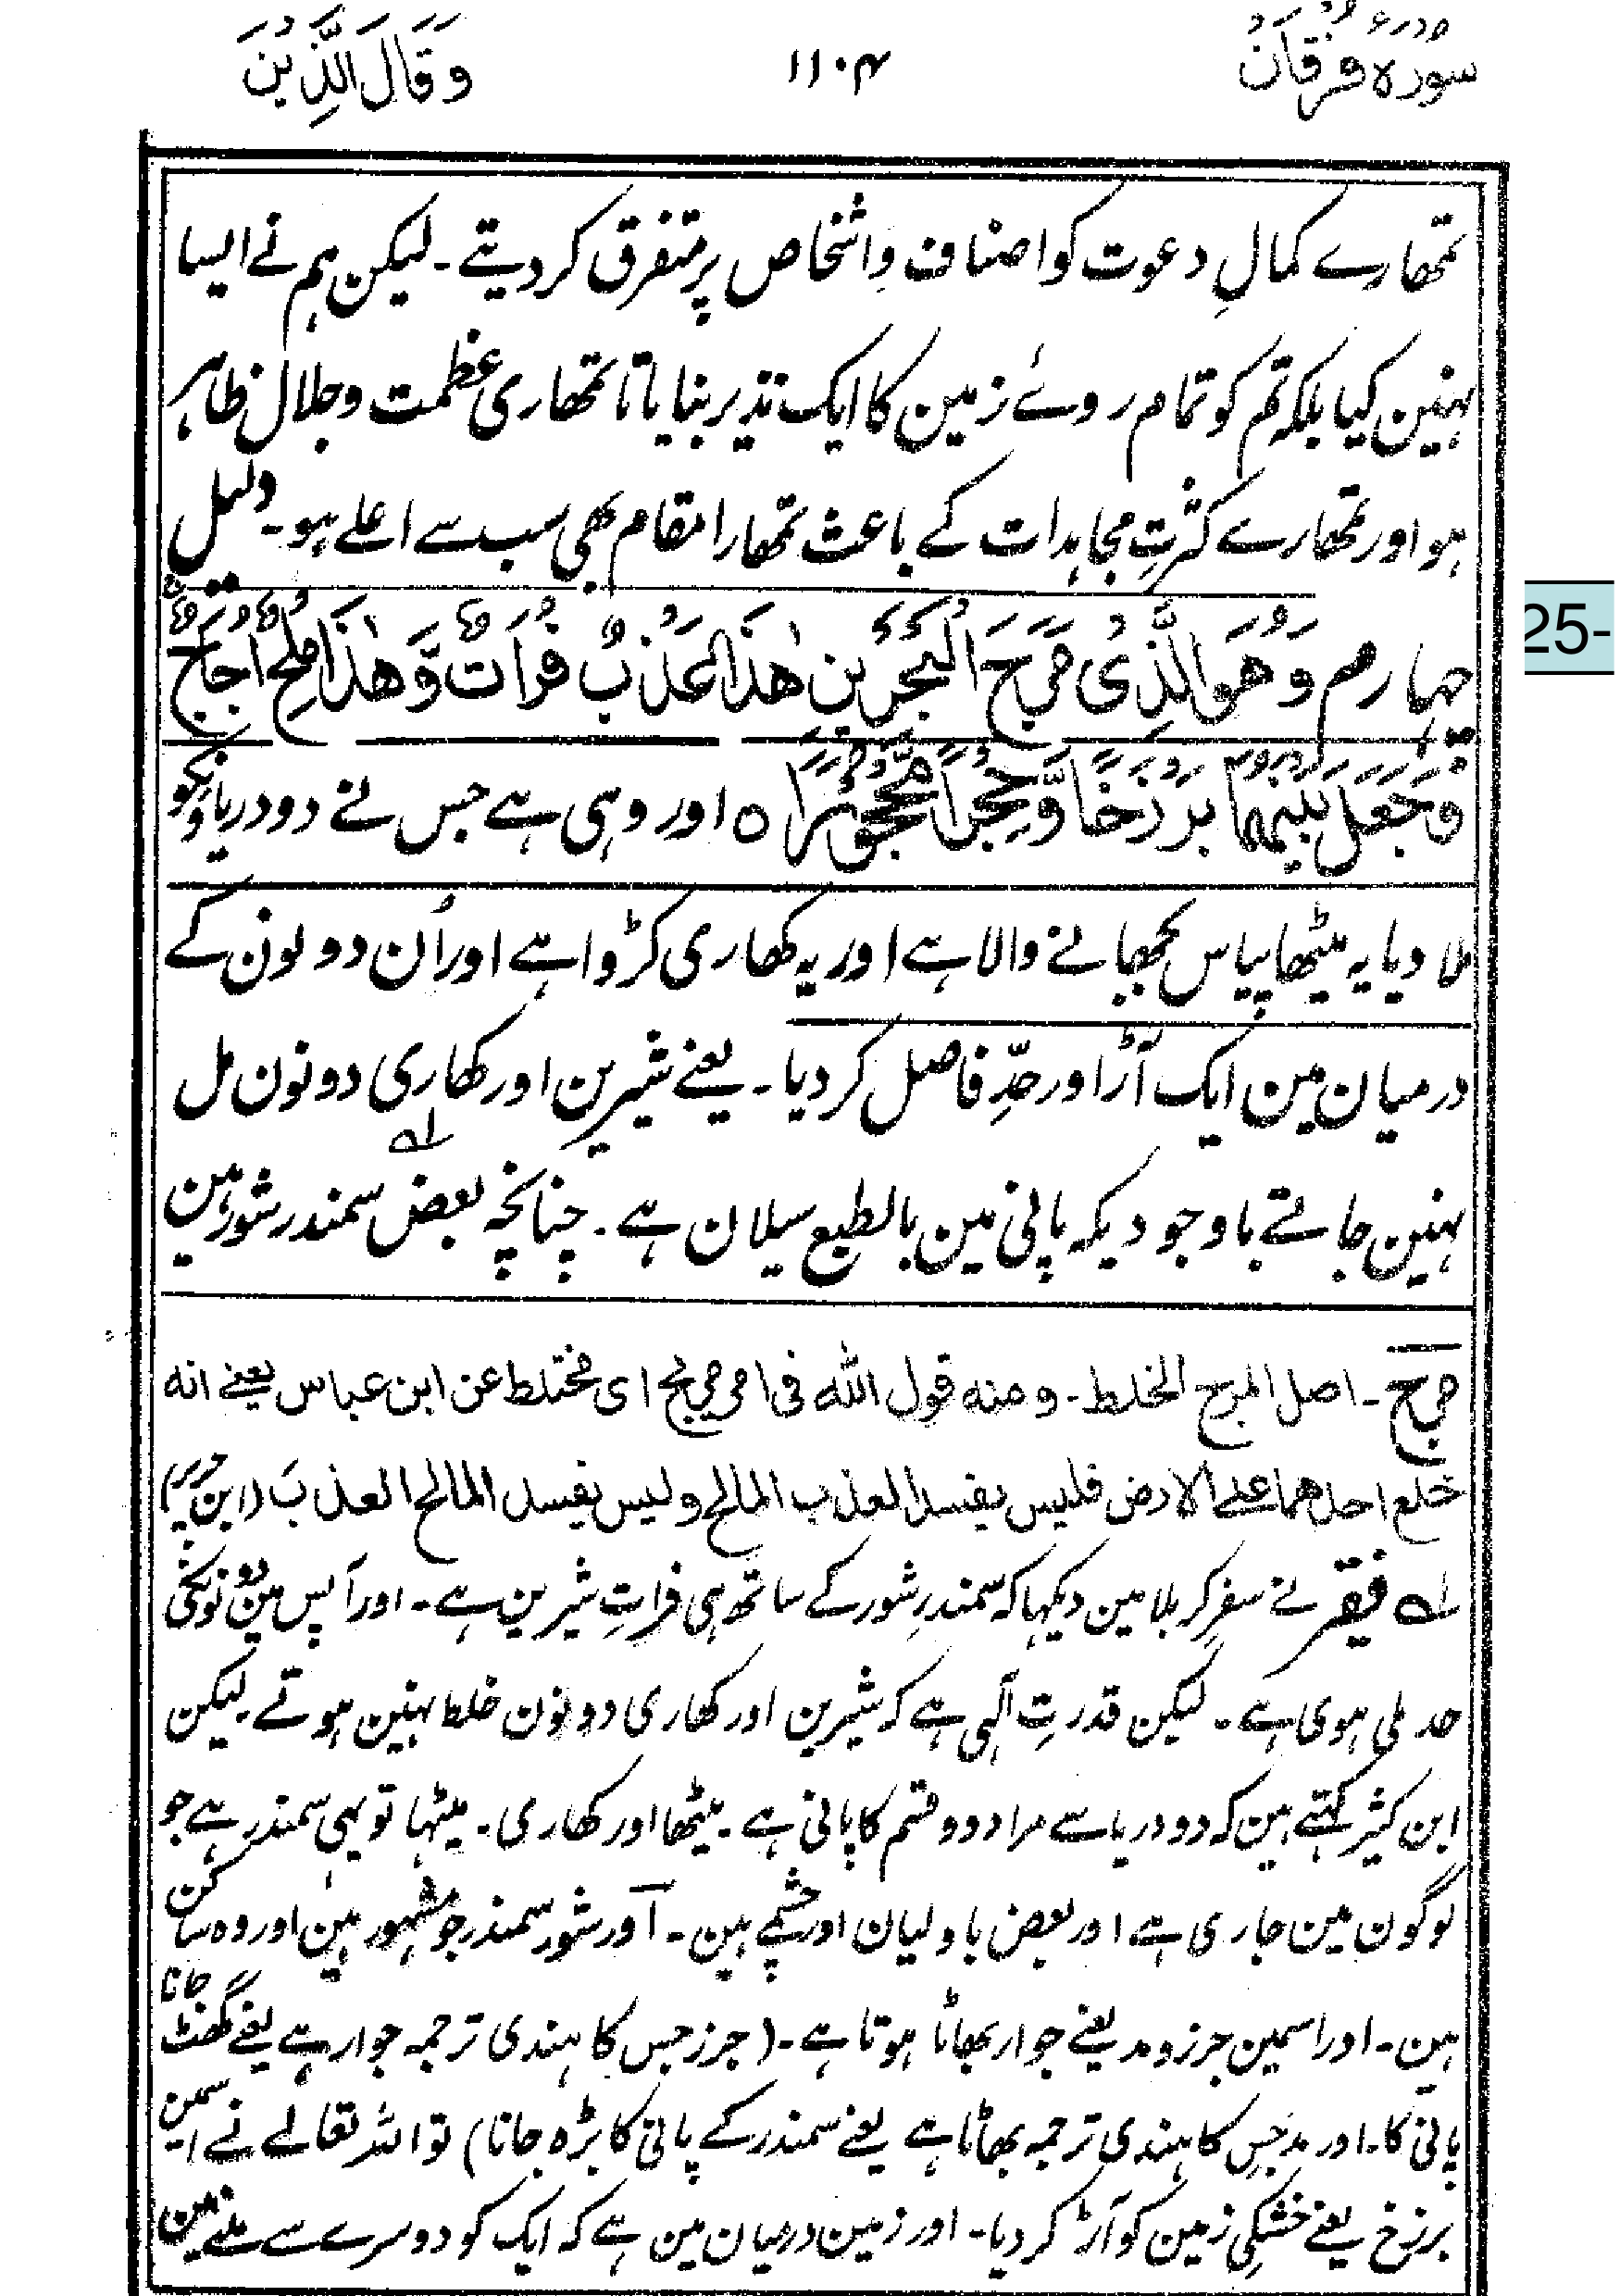 سُوْرَہ فُرْقَانْ
۱۱۰۴
وَقَالَ الَّذِیْنَ
تمھارے کمالِ دعوت کو اصناف و اشخاص پر متفرق کر دیتے۔ لیکن ہم نے ایسا
نہین کیا بلکہ تم کو تمام روئے زمین کا ایک نذیر بنایا تا تمھاری عظمت و جلال ظاہر
ہو اور تمھارے کثرتِ مجاہدات کے باعث تمھارا مقام بھی سب سے اعلے ہو۔ دلیل
چہارم وَهُوَ الَّذِیْ مَرَجَ الْبَحْرَیْنِ هٰذَا عَذْبٌ فُرَاتٌ وَّهٰذَا مِلْحٌ اُجَاجٌ
25-
وَجَعَلَ بَیْنَهُمَا بَرْزَخًا وَّحِجْرًا مَّحْجُوْرًا ○ اور وہی ہے جس نے دو دریاؤنکو
ملا دیا یہ میٹھا پیاس بجھانے والا ہے اور یہ کھاری کڑوا ہے اور اُن دونون کے
درمیان مین ایک آڑ اور حدِّ فاصل کر دیا۔ یعنے شیرین اور کھاری دونون مل
نہین جاتے باوجودیکہ پانی مین بالطبع سیلان ہے۔ چنانچہ بعض سمندر شور مین
مرج۔ اصل المرج الخلط۔ ومنه قول الله فی امر مریج ای مختلط عن ابن عباس یعنے انه
خلع احدهما علی الارض فلیس یفسد العذب المالح ولیس یفسد المالح العذبَ (ابن جریر)
لہ فقیر نے سفر کربلا مین دیکہا کہ سمندرِ شور کے ساتھ ہی فراتِ شیرین ہے۔ اور آپس مین دونونکی
حد ملی ہوی ہے۔ لیکن قدرتِ آلہی ہے کہ شیرین اور کھاری دونون خلط نہین ہوتے۔ لیکن
ابن کثیر کہتے ہین کہ دو دریا سے مراد دو قسم کا پانی ہے۔ میٹھا اور کھاری۔ میٹہا تو یہی سمندر ہے جو
لوگون مین جاری ہے اور بعض باولیان اور چشمے ہین۔ آور شور سمندر جو مشہور ہین اور وہ ساکن
ہین۔ اور اسمین جرز و مد یعنے جوار بھاٹا ہوتا ہے۔ (جرز جس کا ہندی ترجمہ جوار ہے یعنے گھٹ جانا
پانی کا۔ اور مد جس کا ہندی ترجمہ بھاٹا ہے یعنے سمندر کے پانی کا بڑہ جانا) تو اللہ تعالے نے اسمین
برزخ یعنے خشکیِ زمین کو آڑ کر دیا۔ اور زمین درمیان مین ہے کہ ایک کو دوسرے سے ملنے مین